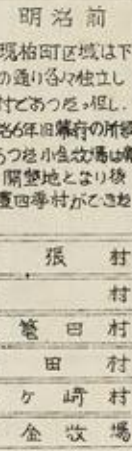 明治前
現柏町区域は下
の通り各々独立し
村であつた。但し、
治6年旧幕府の所領
あつた小金牧場は
開墾地となり後
豊四季村ができた
張村
村
篭田村
田村
ケ崎村
金牧場